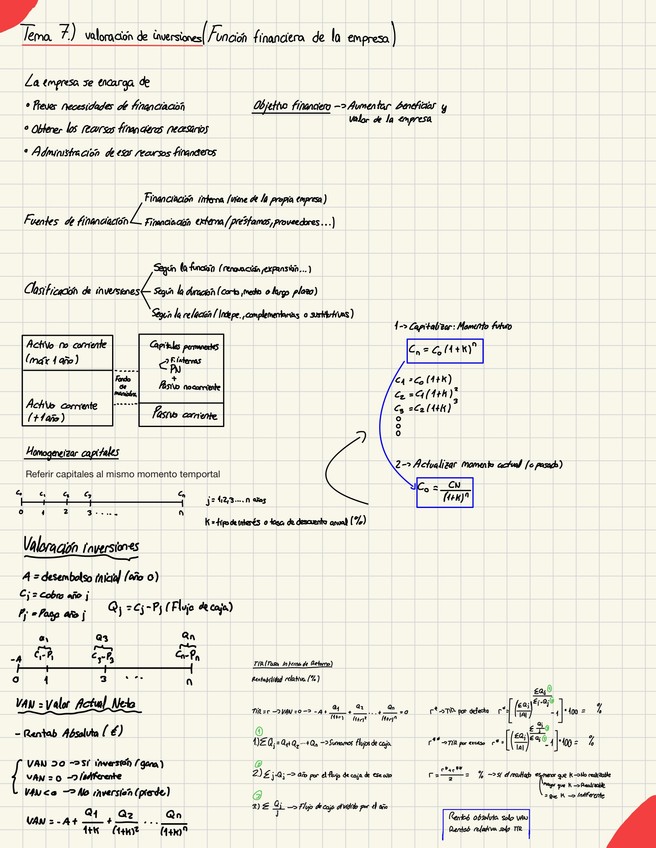 Tema 7.) valoración de inversiones (Función financiera de la empresa)
La empresa se encarga de
• Prever necesidades de financiación
• Obtener los recursos financieros necesarios
• Administración de esos recursos financieros
Objetivo financiero → Aumentar beneficios y
valor de la empresa
Fuentes de financiación
Financiación interna (viene de la propia empresa)
Financiación externa (préstamos, proveedores...)
Clasificación de inversiones
Según la función (renovación, expansión...)
Según la duración (corto, medio o largo plazo)
Según la relación (Indepe., complementarias o sustitutivas)
Activo no corriente
(más 1 año)
Activo corriente
(+1 año)
Fondo
de
maniobra
Capitales permanentes
F. internas
PN
+
Pasivo no corriente
Pasivo corriente
1→ Capitalizar: Momento futuro
Cn = C0 (1+K)^n
C1 = C0 (1+K)
C2 = C1 (1+K)^2
C3 = C2 (1+K)^3
2→ Actualizar momento actual (o pasado)
C0 = CN / (1+K)^n
Homogeneizar capitales
Referir capitales al mismo momento temporal
C0 C1 C2 C3 Cn
0 1 2 3 ..... n
j = 1,2,3.... n años
K = tipo de interés o tasa de descuento anual (%)
Valoración inversiones
A = desembolso inicial (año 0)
Cj = cobro año j
Pj = Pago año j
Qj = Cj - Pj (Flujo de caja)
Q1 Q3 Qn
-A C1-P1 C3-P3 Cn-Pn
0 1 3 ... n
VAN = Valor Actual Neto
- Rentab Absoluta (€)
VAN > 0 → sí inversión (gana)
VAN = 0 → Indiferente
VAN < 0 → No inversión (pierde)
VAN = -A + Q1/(1+K) + Q2/(1+K)^2 ... Qn/(1+K)^n
TIR (Tasa Interna de Retorno)
Rentabilidad relativa (%)
TIR = r → VAN = 0 → -A + Q1/(1+r) + Q2/(1+r)^2 ... + Qn/(1+r)^n = 0
①
1) ΣQj = Q1 + Q2 ... + Qn → Sumamos flujos de caja
②
2) Σj·Qj → año por el flujo de caja de ese año
③
3) Σ Qj/j → Flujo de caja dividido por el año
r* → TIR por defecto r* = [(ΣQj/|A|)^(ΣQj/Σj·Qj) - 1] · 100 = %
r** → TIR por exceso r** = [(ΣQj/|A|)^(Σ Qj/j / ΣQj) - 1] · 100 = %
r = (r* + r**)/2 = % → si el resultado es menor que K → No realizable
mayor que K → Realizable
= que K → Indiferente
Rentab absoluta solo VAN
Rentab relativa solo TIR